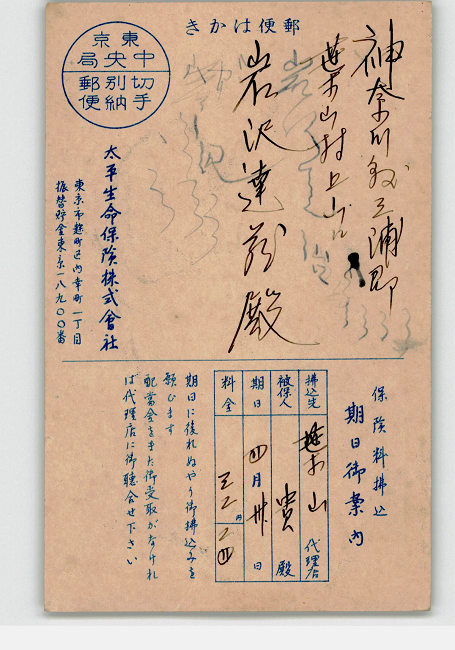 郵便はかき
東京
中央局
切手
別納
郵便
神奈川縣三浦郡
葉山村上山口
岩沢達蔵殿
太平生命保険株式會社
東京市麹町区内幸町一丁目
振替貯金東京一八九〇〇番
保険料拂込
期日御案内
拂込先 葉山 代理店
被保人 貴殿
期日 四月卅日
料金 三二円二四
期日に後れぬやう御拂込みを
願ひます
配当金をまだ御受取がなけれ
ば代理店に御聴合せ下さい